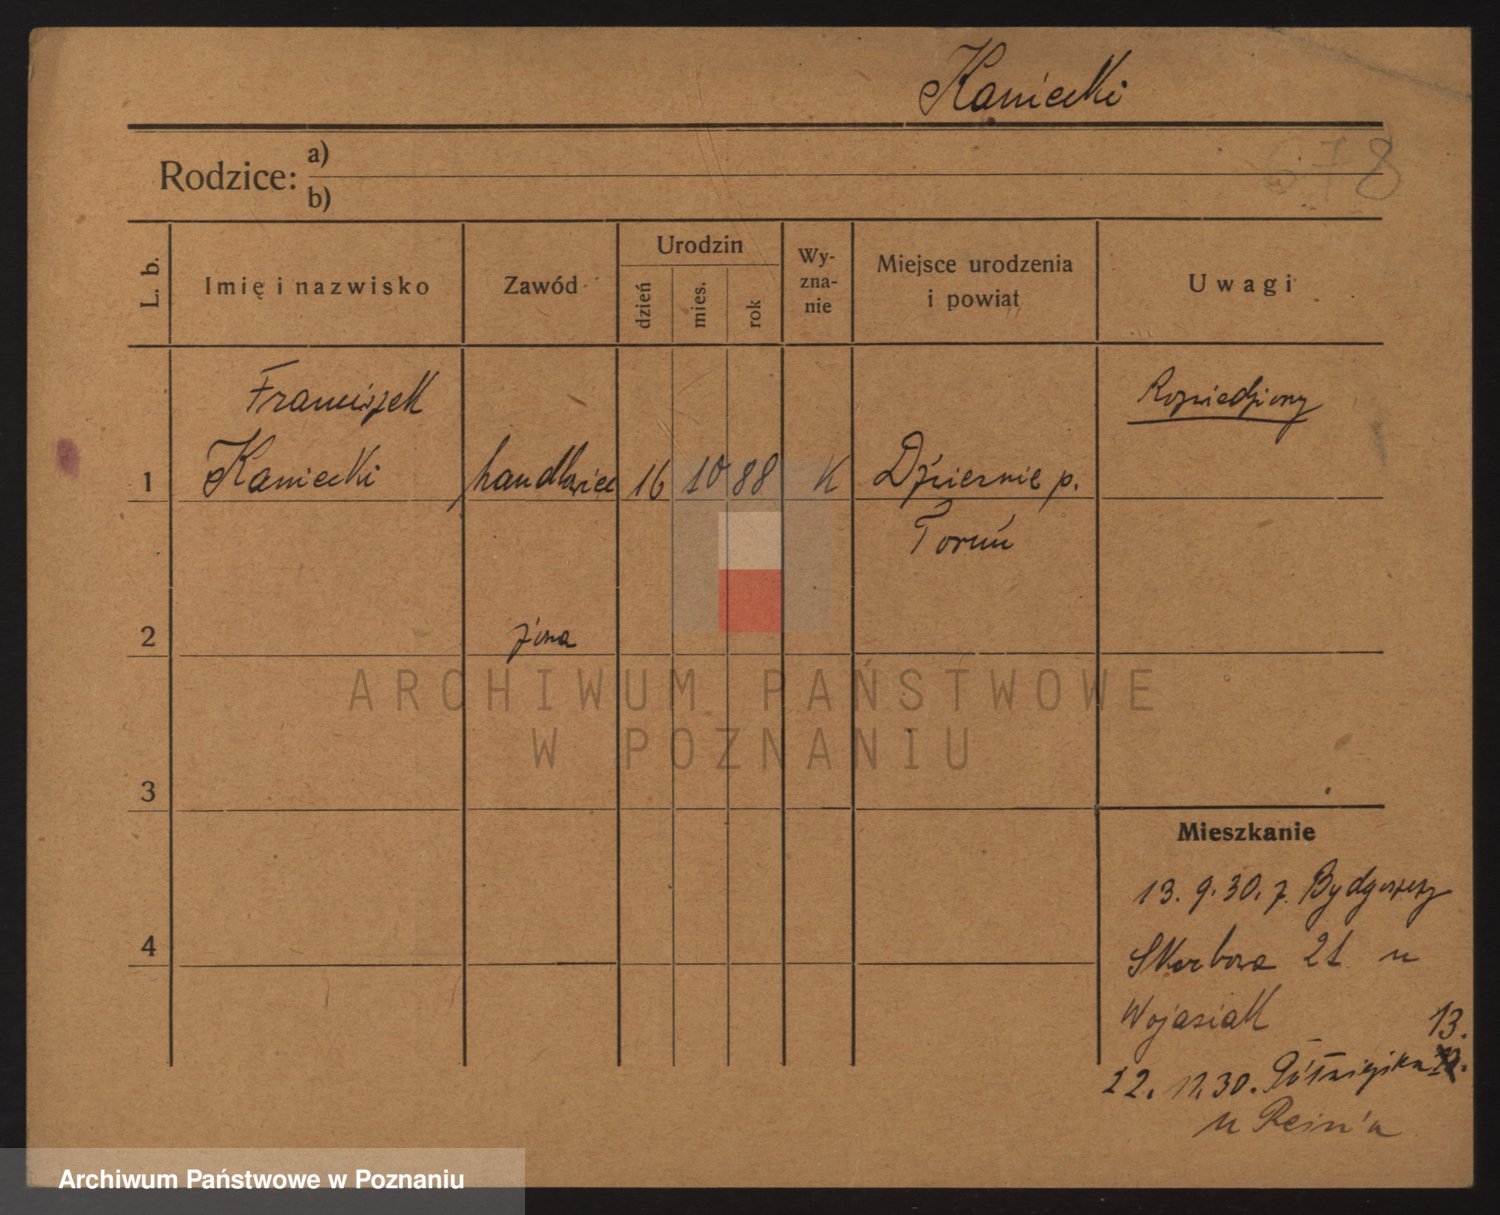 Kaniecki
678
Rodzice: a)
b)
L. b.
Imię i nazwisko
Zawód
Urodzin
dzień
mies.
rok
Wy-
zna-
nie
Miejsce urodzenia
i powiat
Uwagi
Franciszek
Rozwiedziony
1 Kaniecki handlowiec 16 10 88 K Dźwierznie p.
Toruń
2 żona
3
4
ARCHIWUM PAŃSTWOWE
W POZNANIU
Mieszkanie
13. 9. 30. z Bydgoszczy
Skarbowa 21 u
Wojasiak
13.
22. 12.30. Półwiejska
u Rein'a
Archiwum Państwowe w Poznaniu